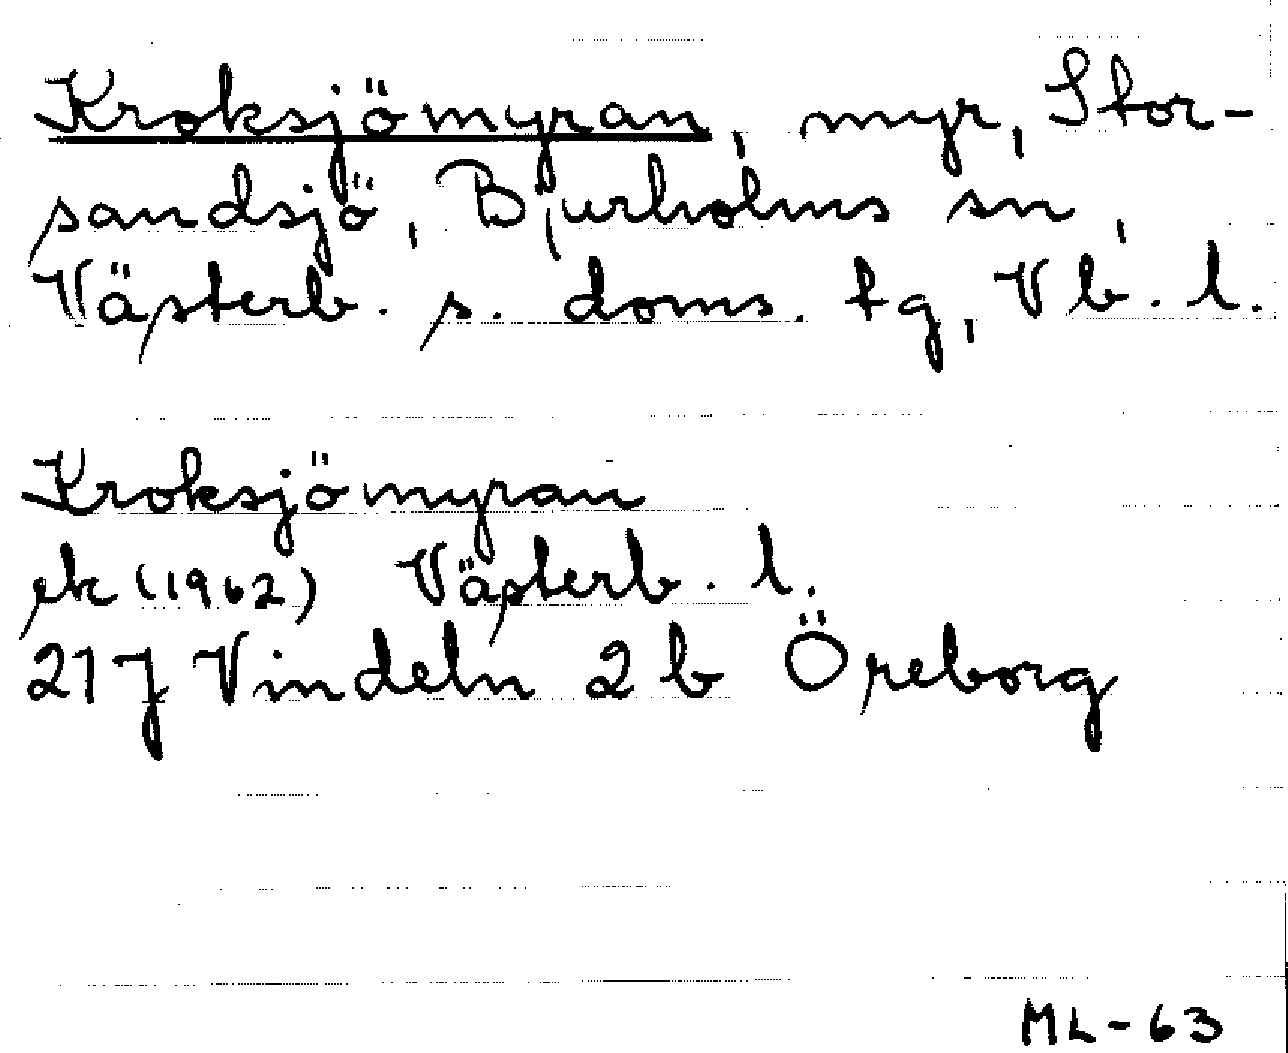 Kroksjömyran, myr, Stor-
sandsjö, Bjurholms sn,
Västerb. s. doms. tg, Vb. l.
Kroksjömyran
ek (1962) Västerb. l.
21 J Vindeln 2 b Öreborg
ML-63